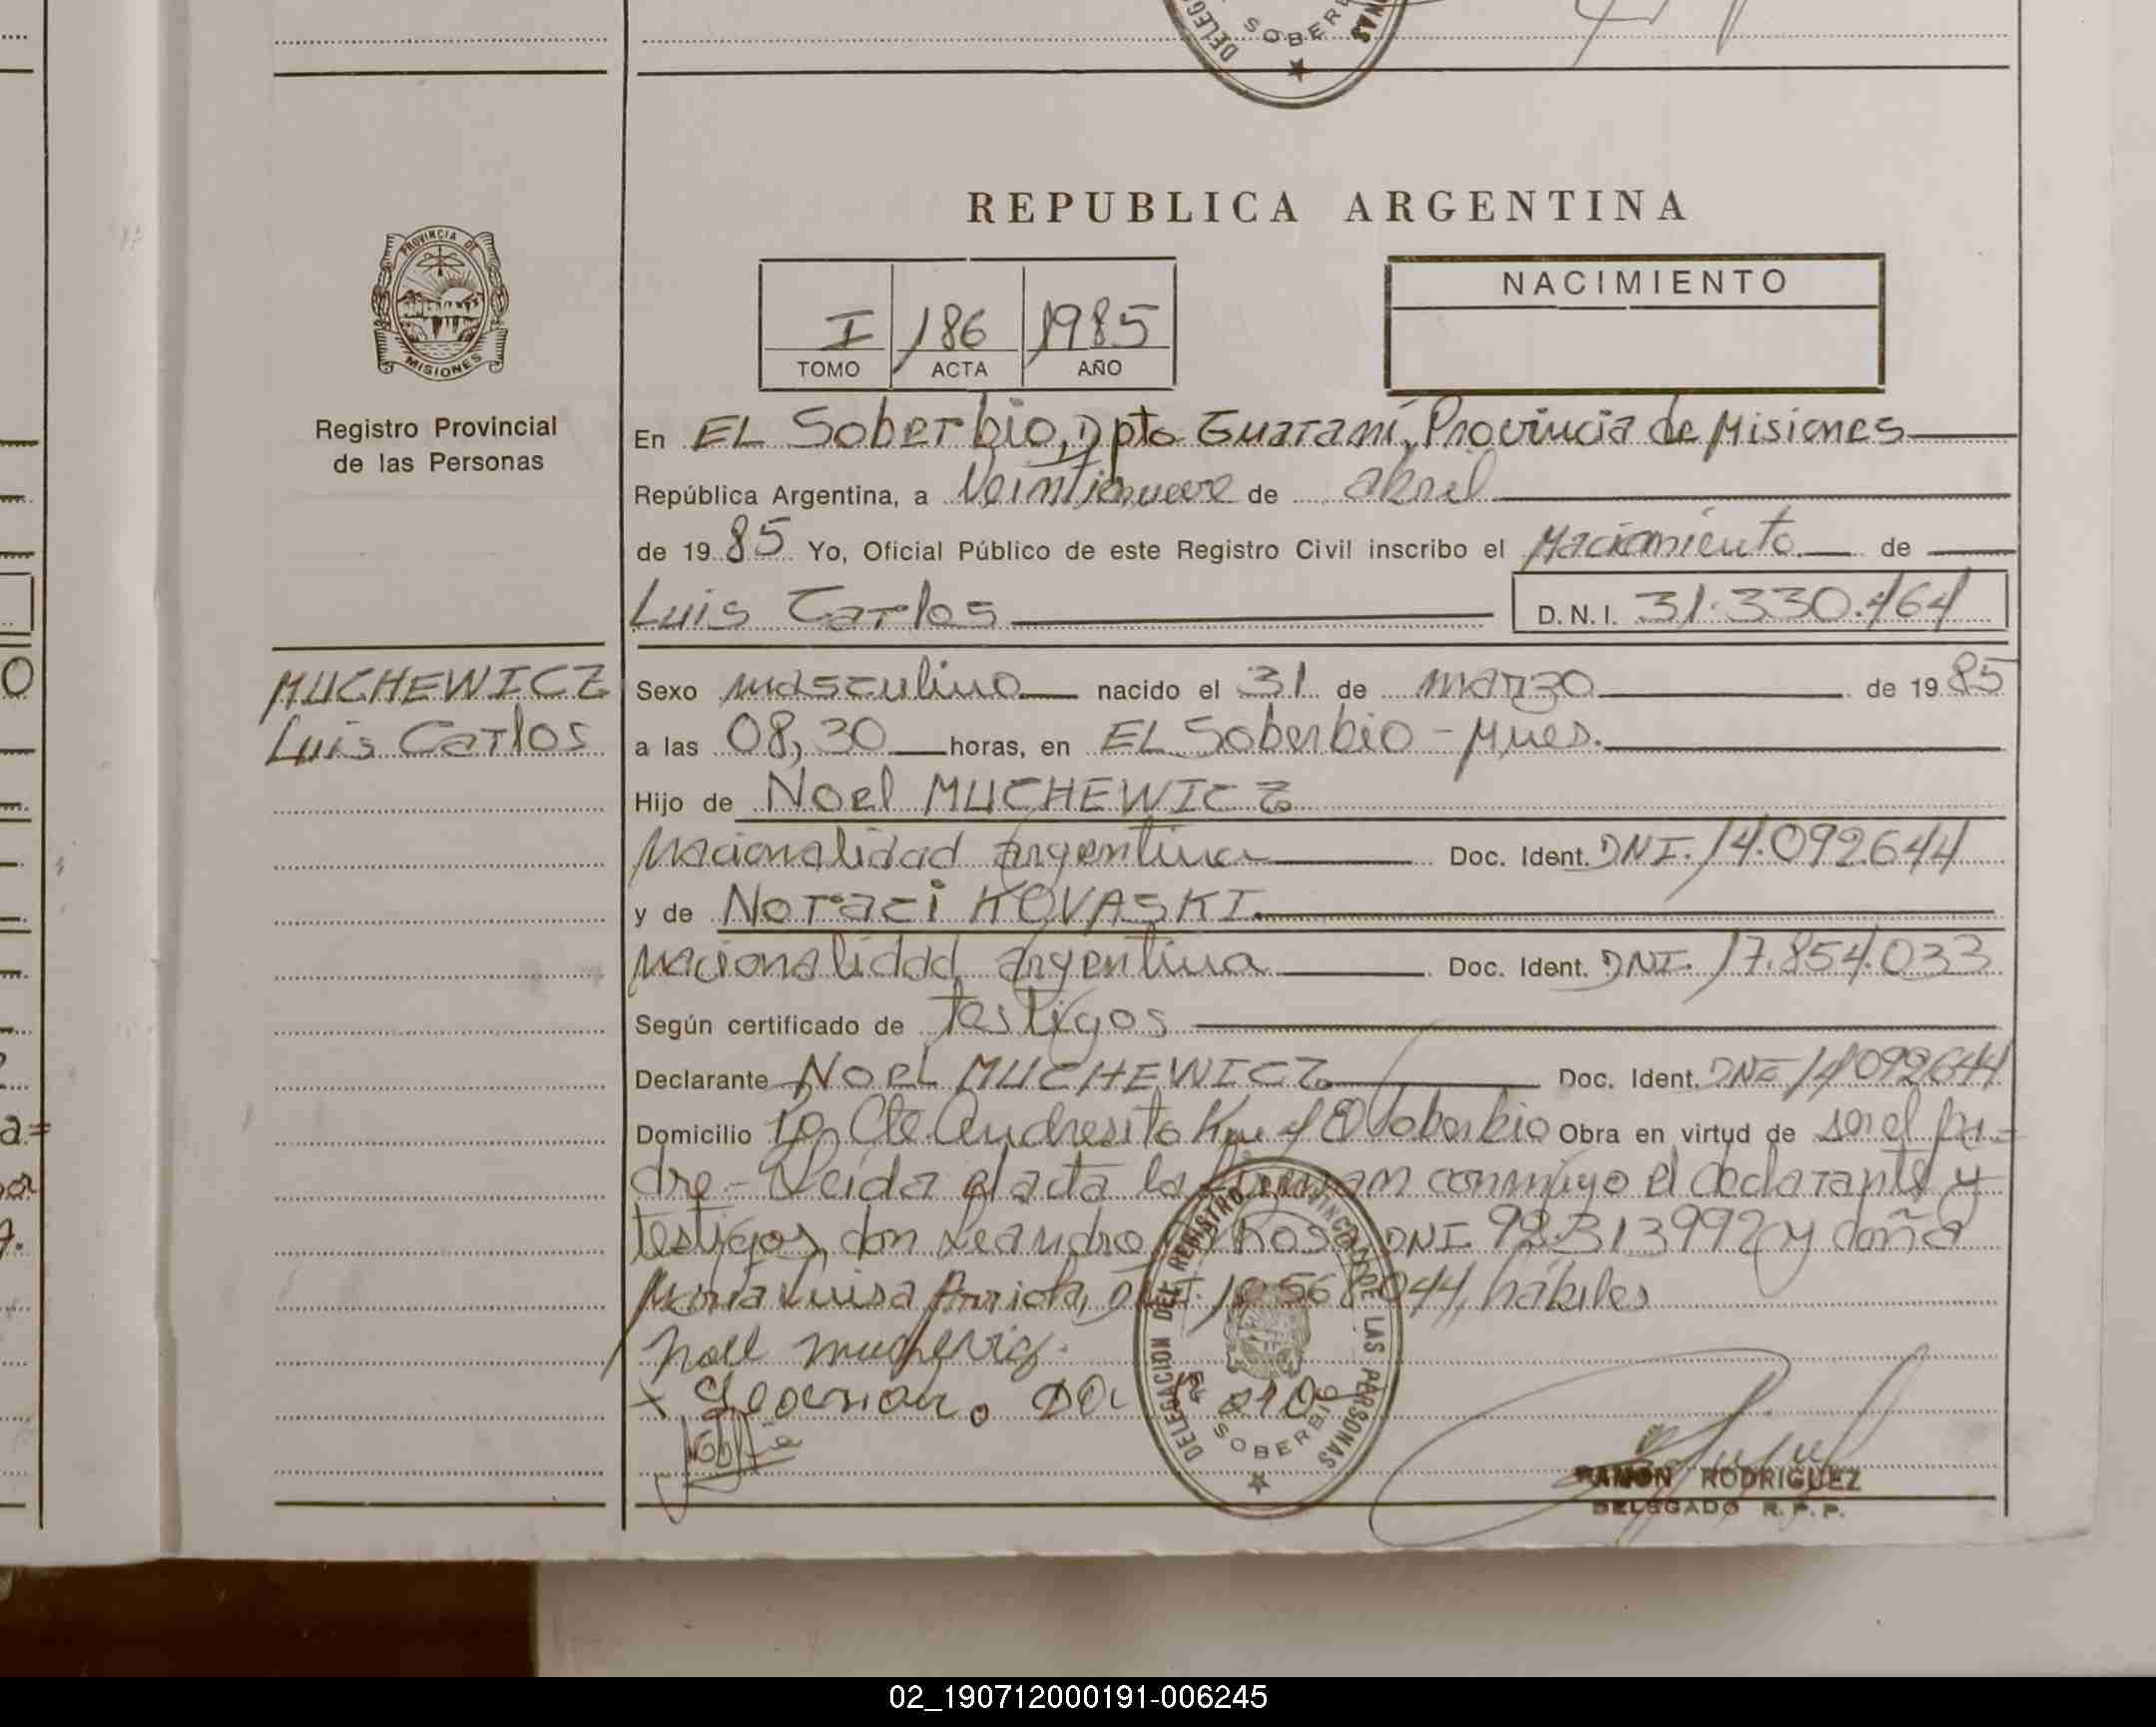 SOBER
REPUBLICA ARGENTINA
PROVINCIA DE
MISIONES
Registro Provincial
de las Personas
I 186 1985
TOMO ACTA AÑO
NACIMIENTO
En EL Soberbio, Dpto Guaraní, Provincia de Misiones
República Argentina, a Veintinueve de abril
de 1985 Yo, Oficial Público de este Registro Civil inscribo el Nacimiento de
Luis Carlos D.N.I. 31.330.464
MUCHEWICZ
Luis Carlos
Sexo masculino nacido el 31 de marzo de 1985
a las 08,30 horas, en EL Soberbio - Mnes.
Hijo de Noel MUCHEWICZ
Nacionalidad argentina Doc. Ident. DNI. 14.092644
y de Noraci KOVASKI
nacionalidad argentina Doc. Ident. DNI. 17.854.033
Según certificado de testigos
Declarante Noel MUCHEWICZ Doc. Ident. DNI 14092644
Domicilio Cte. Andresito Km 4 El Soberbio Obra en virtud de ser el pa-
dre - Leída el acta la firman conmigo el declarante y
testigos, don Leandro DNI 92.313992 y doña
María Luisa Arriola, DNI. 10568044, hábiles
Noel Muchewicz
DELEGACION DEL REGISTRO PROVINCIAL DE LAS PERSONAS
EL SOBERBIO
RAMON RODRIGUEZ
DELEGADO R.P.P.
02_190712000191-006245